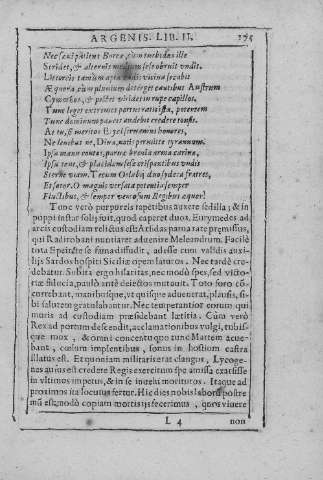 ARGENIS. LIB. II. 375
Nec
Stridet, & alternis obruit undis.
vicina
Æquora, cùm pluvium deterget cautibus Austrum
Cymothoë, & pectit virides in rupe capillos.
Tunc leget extremos partus ratis ista, potentem
Tunc dominum pavet audebit credere
At tu, ô meritos Erycis honores,
Ne lenibus Diva, nati permitte tyrannum.
Ipsa manu rates, parvæ brevia arma carinæ,
Ipsa tene, & placidum sese crispantibus undis
Sterne viam. Tecum Oebalij duo sydera fratres,
Et sator. O magnis versata potentia semper
Fluctibus, & semper ventosum Regibus æquor!
Tunc verò purpureis tapetibus auratæ sedilia; & in
poppi instar solij fuit, quod caperet duos. Eurymedes ad
arcis custodiam relictus est. Arsidas parua rate præmissus,
qui Radirobani nuntiaret aduenire Meleandrum. Facilè
tota Epeircte se fama diffudit, adesse cum validis auxiliis
Sardos hospiti Siciliæ opem laturos. Nec tardè credebatur.
Subita ergo hilaritas, nec modò spes, sed victoriæ
fiducia, paulò antè deiectos mutauit. Toto foro concurrebant,
manibusque, vt quisque aduenerat, plausis, sibi
salutem gratulabantur. Nec temperantior eorum qui
muris ad custodiam præsidebant lætitia. Cùm verò
Rex ad portum descendit, acclamationibus vulgi, tubisque
mox, & omni concentu quo tunc Martem acuebant,
cœlum implentibus, sonus in hostium castra
illatus est. Et quoniam militaris erat clangus, Lycogenes
ausus est credere Regis exercitum spe amissa exarsisse
in vltimos impetus, & in se inuehi morituros. Itaque ad
proximos ita locutus fertur. Hic dies nobis labori postremus
est, modò copiam mortis iis fecerimus, quos viuere
L 4 non